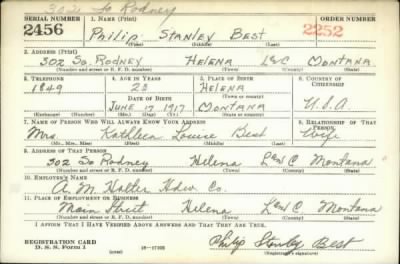 302 So Rodney
SERIAL NUMBER 1. NAME (Print) ORDER NUMBER
2456 Philip Stanley Best 2252
(First) (Middle) (Last)
2. ADDRESS (Print)
302 So. Rodney Helena L&C Montana
(Number and street or R. F. D. number) (Town) (County) (State)
3. TELEPHONE 4. AGE IN YEARS 5. PLACE OF BIRTH 6. COUNTRY OF CITIZENSHIP
1849 23 Helena
(Town or county)
DATE OF BIRTH
June 17 1917 Montana U.S.A.
(Exchange) (Number) (Mo.) (Day) (Yr.) (State or country)
7. NAME OF PERSON WHO WILL ALWAYS KNOW YOUR ADDRESS 8. RELATIONSHIP OF THAT PERSON
Mrs. Kathleen Louise Best Wife
(Mr., Mrs., Miss) (First) (Middle) (Last)
9. ADDRESS OF THAT PERSON
302 So Rodney Helena L&C Montana
(Number and street or R. F. D. number) (Town) (County) (State)
10. EMPLOYER'S NAME
A. M. Holter Hdw. Co.
11. PLACE OF EMPLOYMENT OR BUSINESS
Main Street Helena L&C Montana
(Number and street or R. F. D. number) (Town) (County) (State)
I AFFIRM THAT I HAVE VERIFIED ABOVE ANSWERS AND THAT THEY ARE TRUE.
REGISTRATION CARD
D. S. S. Form 1 (over) 16-17105 Philip Stanley Best